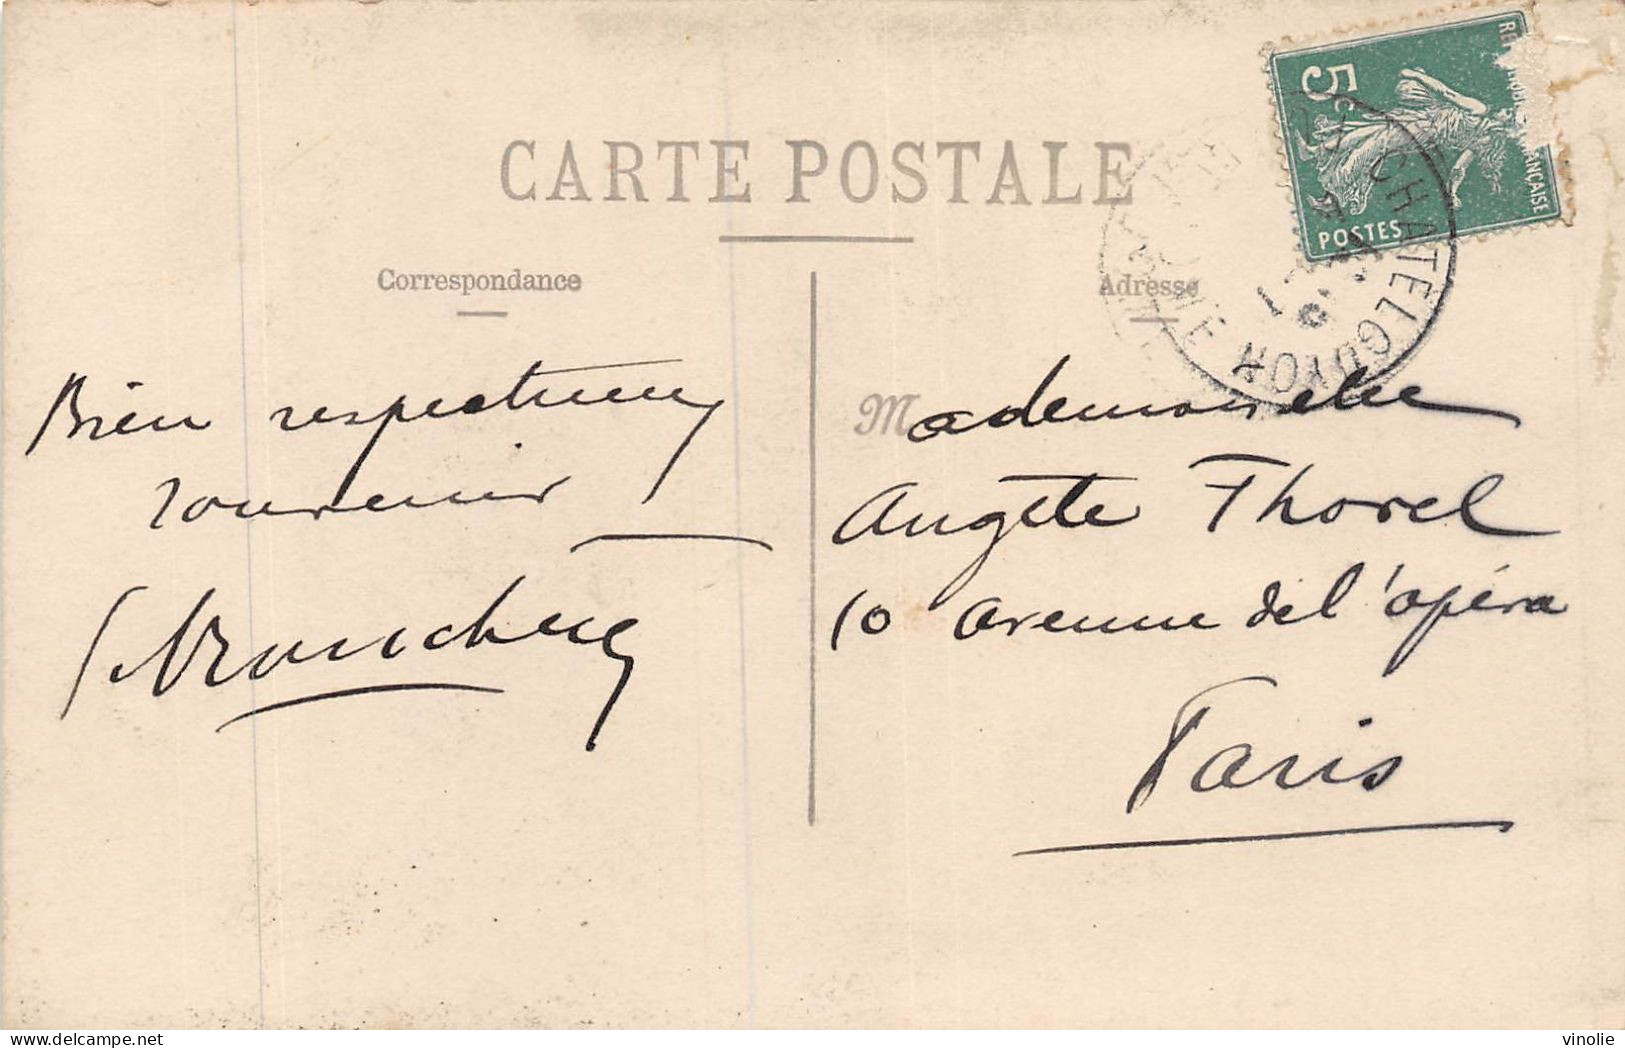 CARTE POSTALE
Correspondance
Adresse
5c
RÉPUBLIQUE FRANÇAISE
POSTES
CHATELGUYON
Bien respectueux
souvenir
Mademoiselle
Angèle Thorel
10 avenue de l'opéra
Paris
vinolie